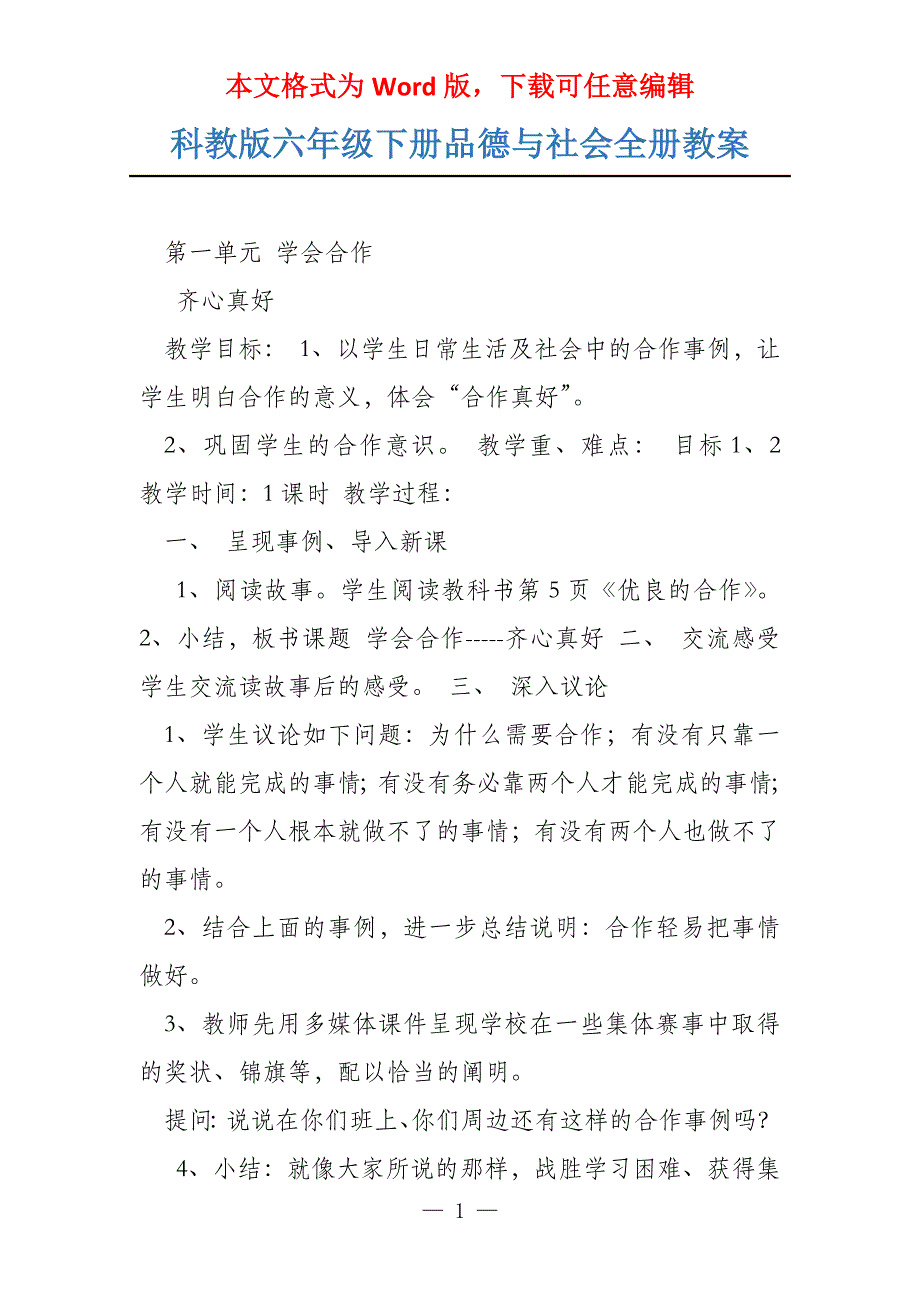 本文格式为 Word 版，下载可任意编辑
科教版六年级下册品德与社会全册教案
第一单元 学会合作
齐心真好
教学目标： 1、以学生日常生活及社会中的合作事例，让
学生明白合作的意义，体会“合作真好”。
2、巩固学生的合作意识。 教学重、难点： 目标 1、2
教学时间：1 课时 教学过程：
一、 呈现事例、导入新课
1、阅读故事。学生阅读教科书第 5 页《优良的合作》。
2、小结，板书课题 学会合作-----齐心真好 二、 交流感受
学生交流读故事后的感受。 三、 深入议论
1、学生议论如下问题：为什么需要合作；有没有只靠一
个人就能完成的事情；有没有务必靠两个人才能完成的事情；
有没有一个人根本就做不了的事情；有没有两个人也做不了
的事情。
2、结合上面的事例，进一步总结说明：合作轻易把事情
做好。
3、教师先用多媒体课件呈现学校在一些集体赛事中取得
的奖状、锦旗等，配以恰当的阐明。
提问：说说在你们班上、你们周边还有这样的合作事例吗？
4、小结：就像大家所说的那样，战胜学习困难、获得集
— 1 —